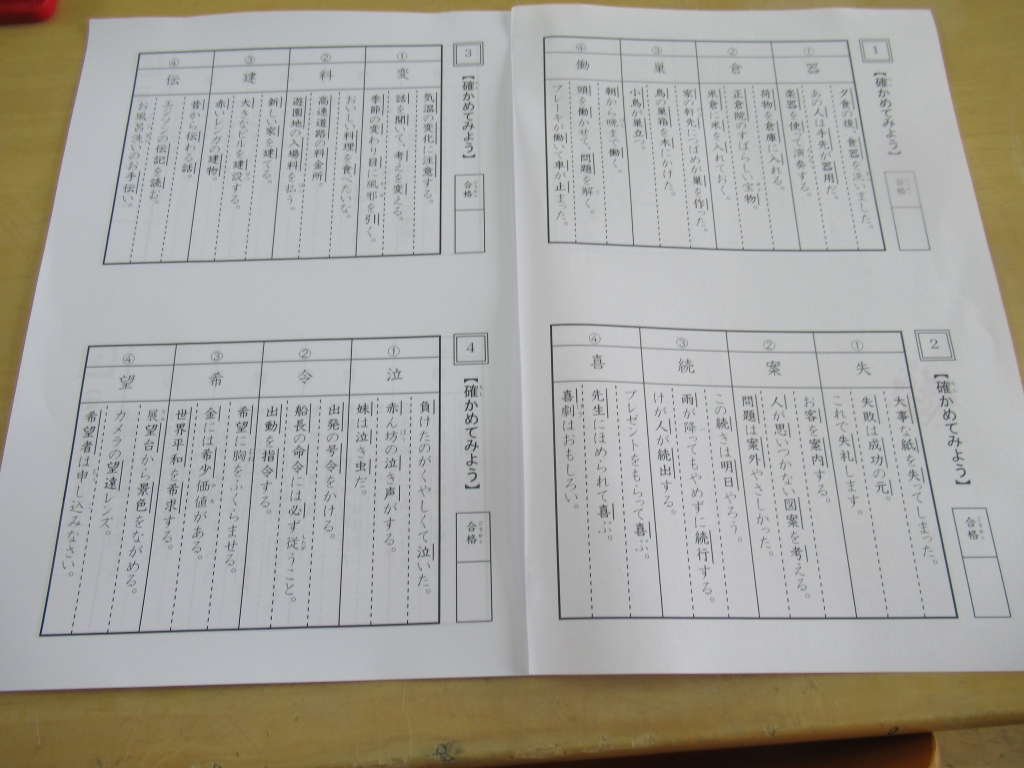 1
【確かめてみよう】
合格
①
器
夕食の後、食器を洗いました。
あの人は手先が器用だ。
楽器を使って演奏する。
②
倉
荷物を倉庫に入れる。
正倉院のすばらしい宝物。
米倉に米を入れておく。
③
巣
家の軒先につばめが巣を作った。
鳥の巣箱を木にかけた。
小鳥が巣立つ。
④
働
朝から晩まで働く。
頭を働かせて、問題を解く。
ブレーキが働いて車が止まった。
2
【確かめてみよう】
合格
①
失
大事な紙を失ってしまった。
失敗は成功の元。
これで失礼します。
②
案
お客を案内する。
人が思いつかない図案を考える。
問題は案外やさしかった。
③
続
この続きは明日やろう。
雨が降ってもやめずに続行する。
けが人が続出する。
④
喜
プレゼントをもらって喜ぶ。
先生にほめられて喜ぶ。
喜劇はおもしろい。
3
【確かめてみよう】
合格
①
変
気温の変化に注意する。
話を聞いて、考えを変える。
季節の変わり目に風邪を引く。
②
料
おいしい料理を食べたいな。
高速道路の料金所。
遊園地の入場料を払う。
③
建
新しい家を建てる。
大きなビルを建設する。
赤いレンガの建物。
④
伝
昔から伝わる話。
エジソンの伝記を読む。
お風呂そうじの手伝い。
4
【確かめてみよう】
合格
①
泣
負けたのがくやしくて泣いた。
赤ん坊の泣き声がする。
妹は泣き虫だ。
②
令
出発の号令をかける。
船長の命令には必ず従うこと。
出動を指令する。
③
希
希望に胸をふくらませる。
金には希少価値がある。
世界平和を希求する。
④
望
展望台から景色をながめる。
カメラの望遠レンズ。
希望者は申し込みなさい。